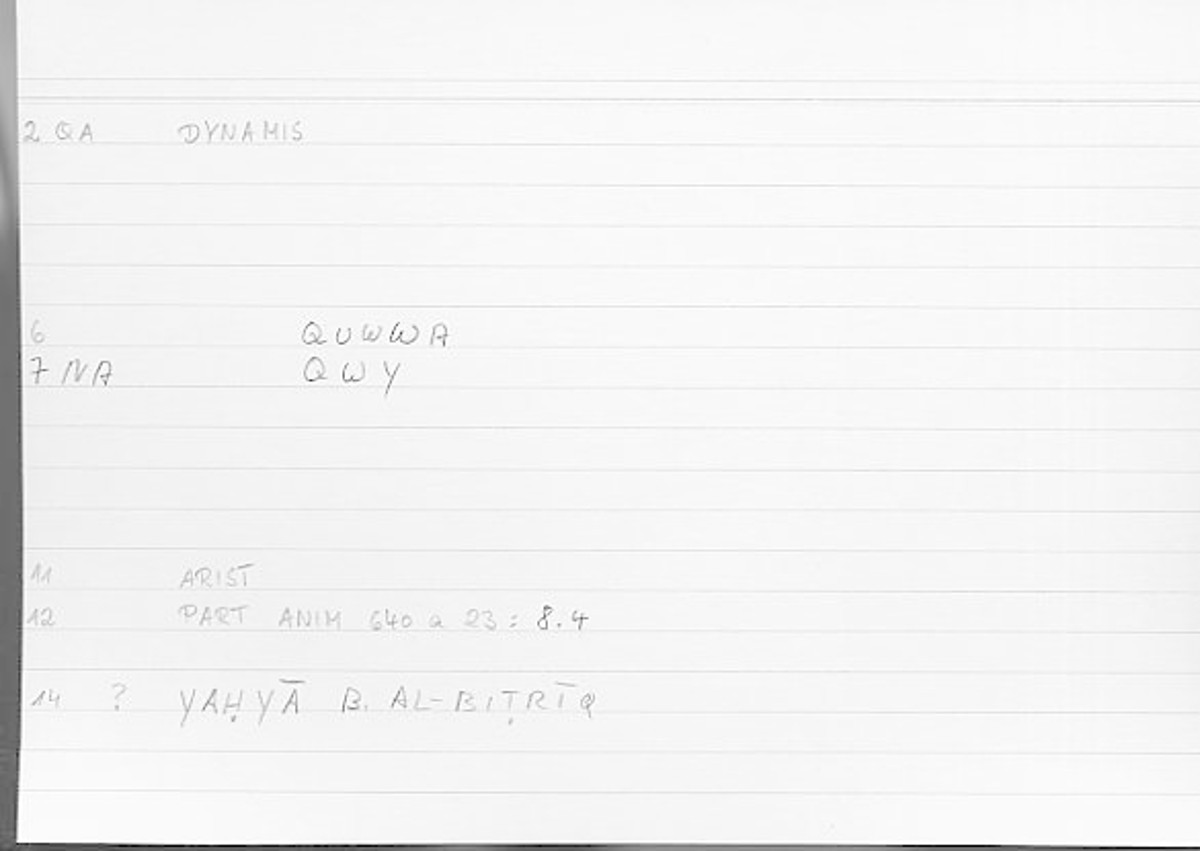 2 QA DYNAMIS
6 QUWWA
7 NA QWY
11 ARIST
12 PART ANIM 640 a 23 : 8.4
14 ? YAḤYĀ B. AL-BIṬRĪQ